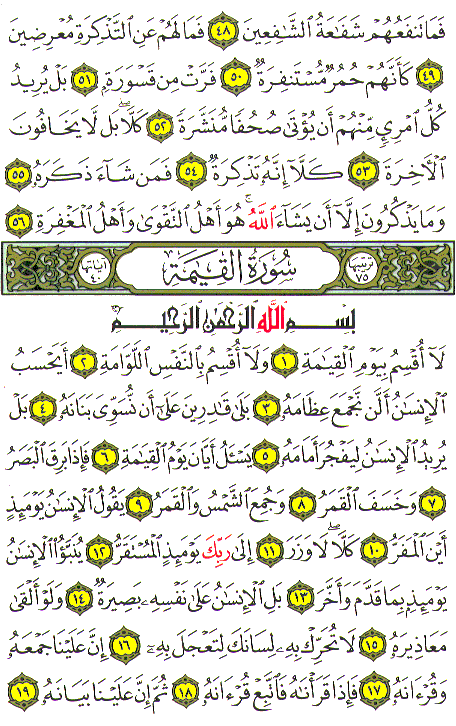 فَمَا تَنفَعُهُمْ شَفَاعَةُ الشَّافِعِينَ ٤٨ فَمَا لَهُمْ عَنِ التَّذْكِرَةِ مُعْرِضِينَ
٤٩ كَأَنَّهُمْ حُمُرٌ مُّسْتَنفِرَةٌ ٥٠ فَرَّتْ مِن قَسْوَرَةٍ ٥١ بَلْ يُرِيدُ
كُلُّ امْرِئٍ مِّنْهُمْ أَن يُؤْتَىٰ صُحُفًا مُّنَشَّرَةً ٥٢ كَلَّا ۖ بَل لَّا يَخَافُونَ
الْآخِرَةَ ٥٣ كَلَّا إِنَّهُ تَذْكِرَةٌ ٥٤ فَمَن شَاءَ ذَكَرَهُ ٥٥
وَمَا يَذْكُرُونَ إِلَّا أَن يَشَاءَ اللَّهُ ۚ هُوَ أَهْلُ التَّقْوَىٰ وَأَهْلُ الْمَغْفِرَةِ ٥٦
ترتيبها ٧٥ سُورَةُ الْقِيَٰمَةِ آياتها ٤٠
بِسْمِ اللَّهِ الرَّحْمَٰنِ الرَّحِيمِ
لَا أُقْسِمُ بِيَوْمِ الْقِيَامَةِ ١ وَلَا أُقْسِمُ بِالنَّفْسِ اللَّوَّامَةِ ٢ أَيَحْسَبُ
الْإِنسَانُ أَلَّن نَّجْمَعَ عِظَامَهُ ٣ بَلَىٰ قَادِرِينَ عَلَىٰ أَن نُّسَوِّيَ بَنَانَهُ ٤ بَلْ
يُرِيدُ الْإِنسَانُ لِيَفْجُرَ أَمَامَهُ ٥ يَسْـَٔلُ أَيَّانَ يَوْمُ الْقِيَامَةِ ٦ فَإِذَا بَرِقَ الْبَصَرُ
٧ وَخَسَفَ الْقَمَرُ ٨ وَجُمِعَ الشَّمْسُ وَالْقَمَرُ ٩ يَقُولُ الْإِنسَانُ يَوْمَئِذٍ
أَيْنَ الْمَفَرُّ ١٠ كَلَّا ۖ لَا وَزَرَ ١١ إِلَىٰ رَبِّكَ يَوْمَئِذٍ الْمُسْتَقَرُّ ١٢ يُنَبَّؤُا الْإِنسَانُ
يَوْمَئِذٍ بِمَا قَدَّمَ وَأَخَّرَ ١٣ بَلِ الْإِنسَانُ عَلَىٰ نَفْسِهِ بَصِيرَةٌ ١٤ وَلَوْ أَلْقَىٰ
مَعَاذِيرَهُ ١٥ لَا تُحَرِّكْ بِهِ لِسَانَكَ لِتَعْجَلَ بِهِ ١٦ إِنَّ عَلَيْنَا جَمْعَهُ
وَقُرْءَانَهُ ١٧ فَإِذَا قَرَأْنَاهُ فَاتَّبِعْ قُرْءَانَهُ ١٨ ثُمَّ إِنَّ عَلَيْنَا بَيَانَهُ ١٩